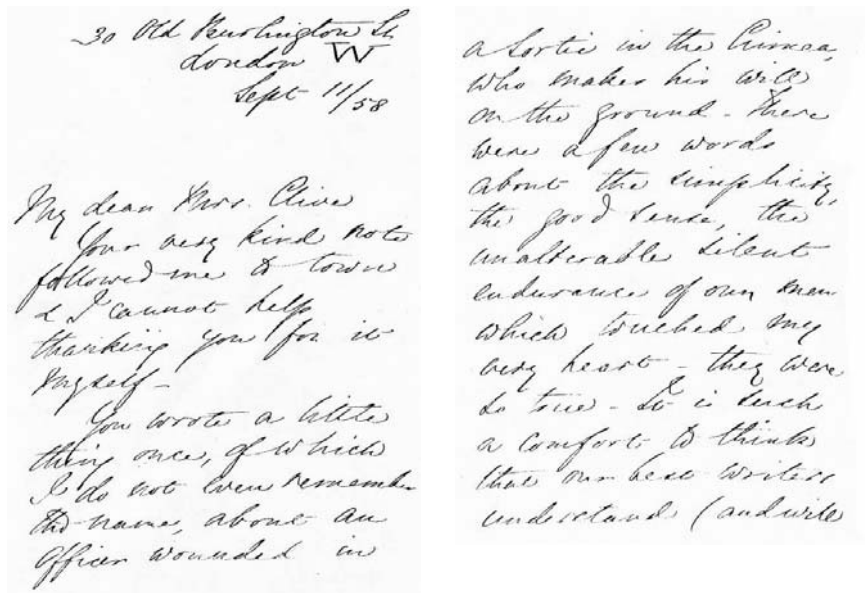 30 Old Burlington St
London W
Sept 11/58
My dear Mrs. Clive
Your very kind note
followed me to town
& I cannot help
thanking you for it
myself -
You wrote a little
thing once, of which
I do not even remember
the name, about an
Officer wounded in
a Sortie in the Crimea,
who makes his will
on the ground - There
were a few words
about the simplicity,
the good sense, the
unalterable silent
endurance of our men
which touched my
very heart - they were
so true - It is such
a comfort to think
that our best writers
understand (and will